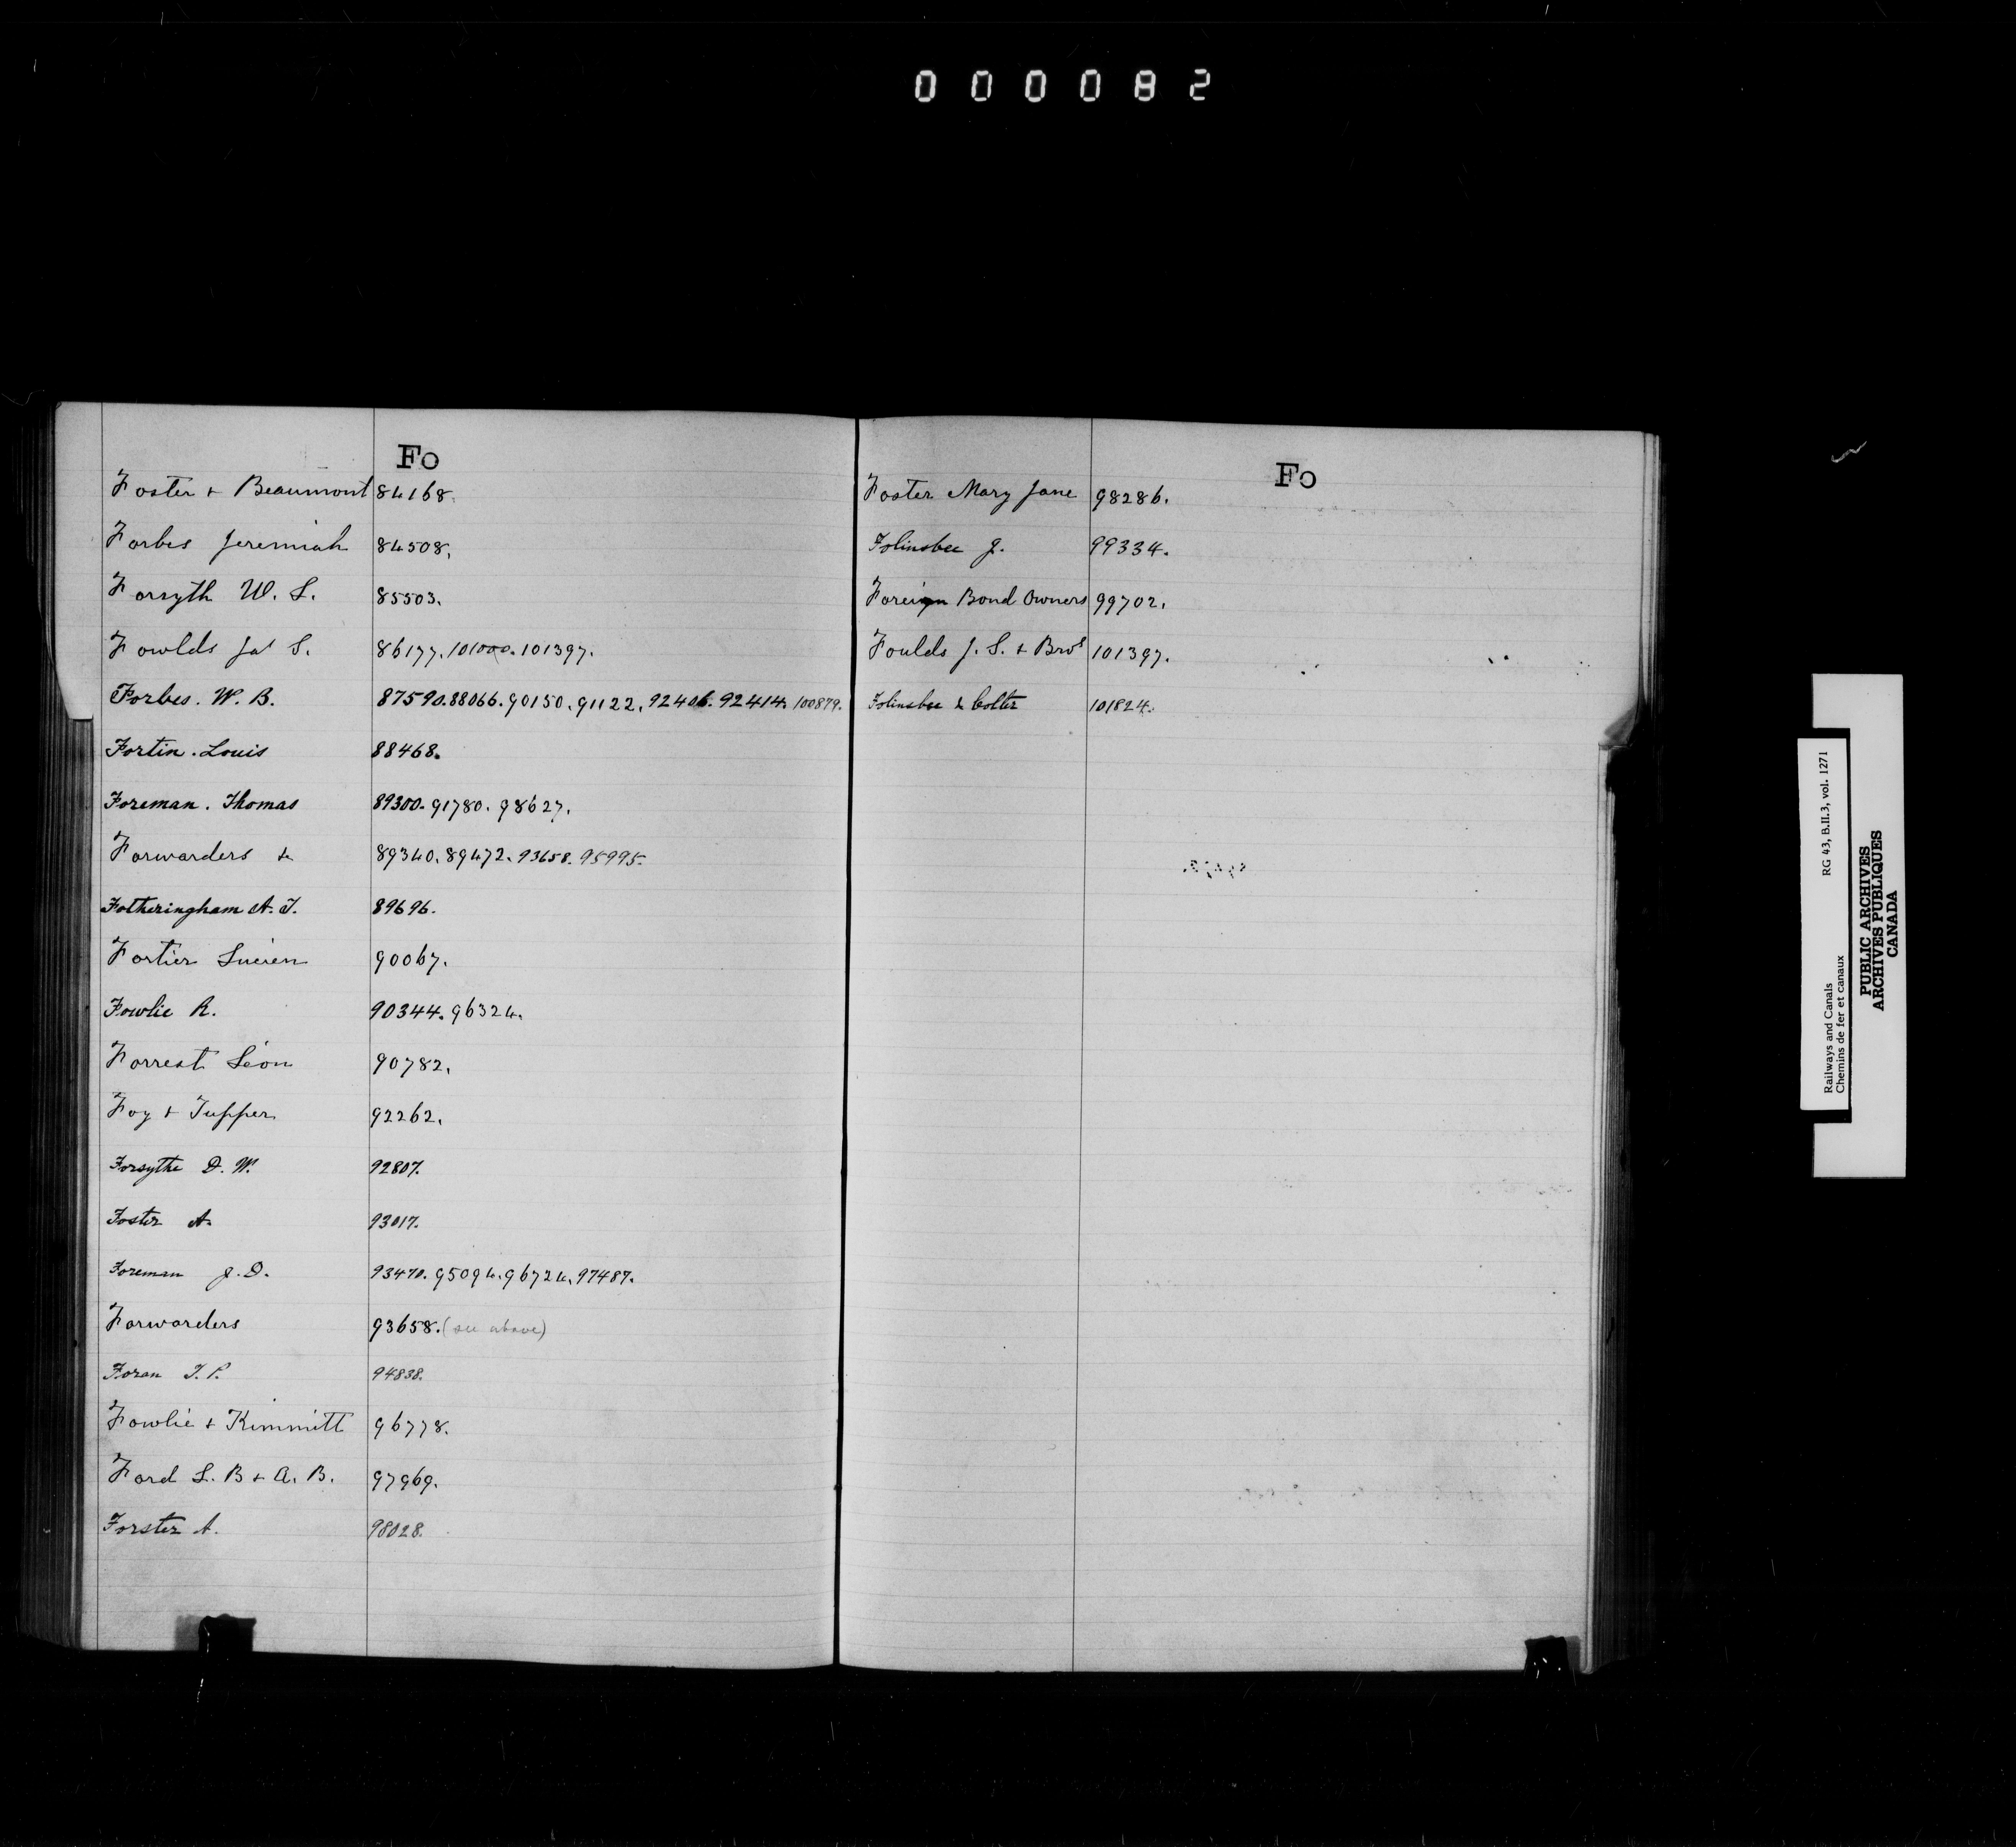 000082
Fo
Foster + Beaumont 84168.
Forbes Jeremiah 84508.
Forsyth W. S. 85503.
Fowlds Jas S. 86177. 101000. 101397.
Forbes. W. B. 87590. 88066. 90150. 91122. 92406. 92414. 100879.
Fortin. Louis 88468.
Foreman. Thomas 89300. 91780. 98627.
Forwarders & 89340. 89472. 93658. 95995.
Fotheringham A. T. 89696.
Fortier Lucien 90067.
Fowlie R. 90344. 96324.
Forrest Léon 90782.
Foy + Tupper 92262.
Forsythe D. W. 92807.
Foster A. 93017.
Foreman J. D. 93470. 95094. 96724. 97487.
Forwarders 93658. (see above)
Foran T. P. 94838.
Fowlie + Kimmitt 96778.
Ford L. B + A. B. 97969.
Forster A. 98028.
Fo
Foster Mary Jane 98286.
Folinsbee J. 99334.
Foreign Bond Owners 99702.
Foulds J. S. + Bros 101397.
Folinsbee & Colter 101824.
RG 43, B.II.3, vol. 1271
Railways and Canals
Chemins de fer et canaux
PUBLIC ARCHIVES
ARCHIVES PUBLIQUES
CANADA